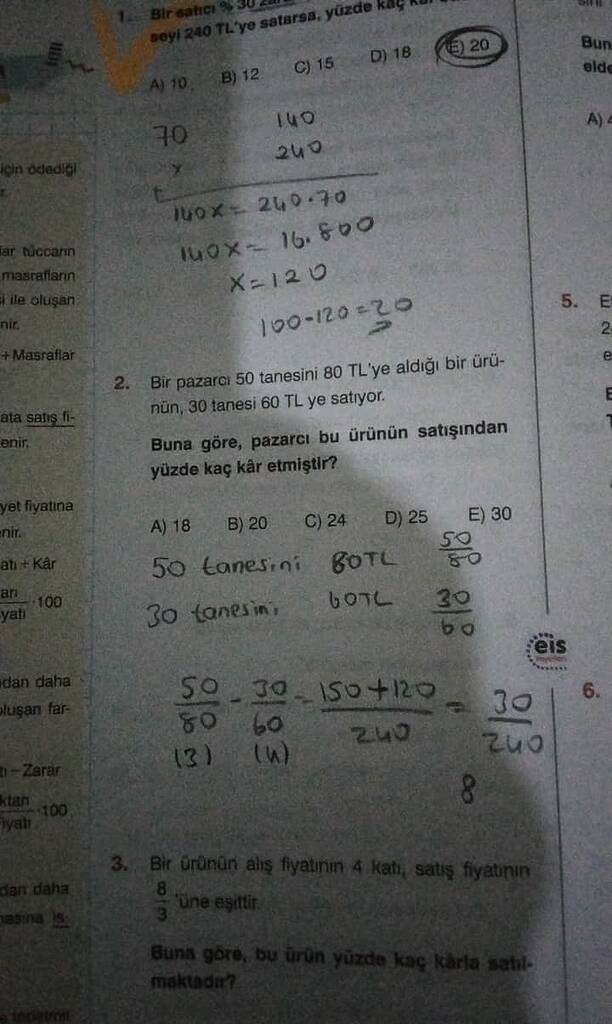 1. Bir satıcı % 30
seyi 240 TL'ye satarsa, yüzde kaç
A) 10 B) 12 C) 15 D) 18 E) 20
70 140
x 240
140x = 240.70
140x = 16.800
x = 120
100-120 = 20
2. Bir pazarcı 50 tanesini 80 TL'ye aldığı bir ürü-
nün, 30 tanesi 60 TL ye satıyor.
Buna göre, pazarcı bu ürünün satışından
yüzde kaç kâr etmiştir?
A) 18 B) 20 C) 24 D) 25 E) 30
50 tanesini 80TL 50/80
30 tanesini 60TL 30/60
50/80 - 30/60 = 150+120/240 = 30/240
(3) (4)
8
3. Bir ürünün alış fiyatının 4 katı, satış fiyatının
8/3 'üne eşittir.
Buna göre, bu ürün yüzde kaç kârla satıl-
maktadır?
için ödediği
lar tüccarın
masrafların
si ile oluşan
nir.
+ Masraflar
ata satış fi-
enir.
yet fiyatına
enir.
atı + Kâr
·100
yatı
ndan daha
oluşan far-
tı – Zarar
ktarı
·100
iyatı
ndan daha
masına is-
eis
Bun
elde
A)
5. E
2
e
6.